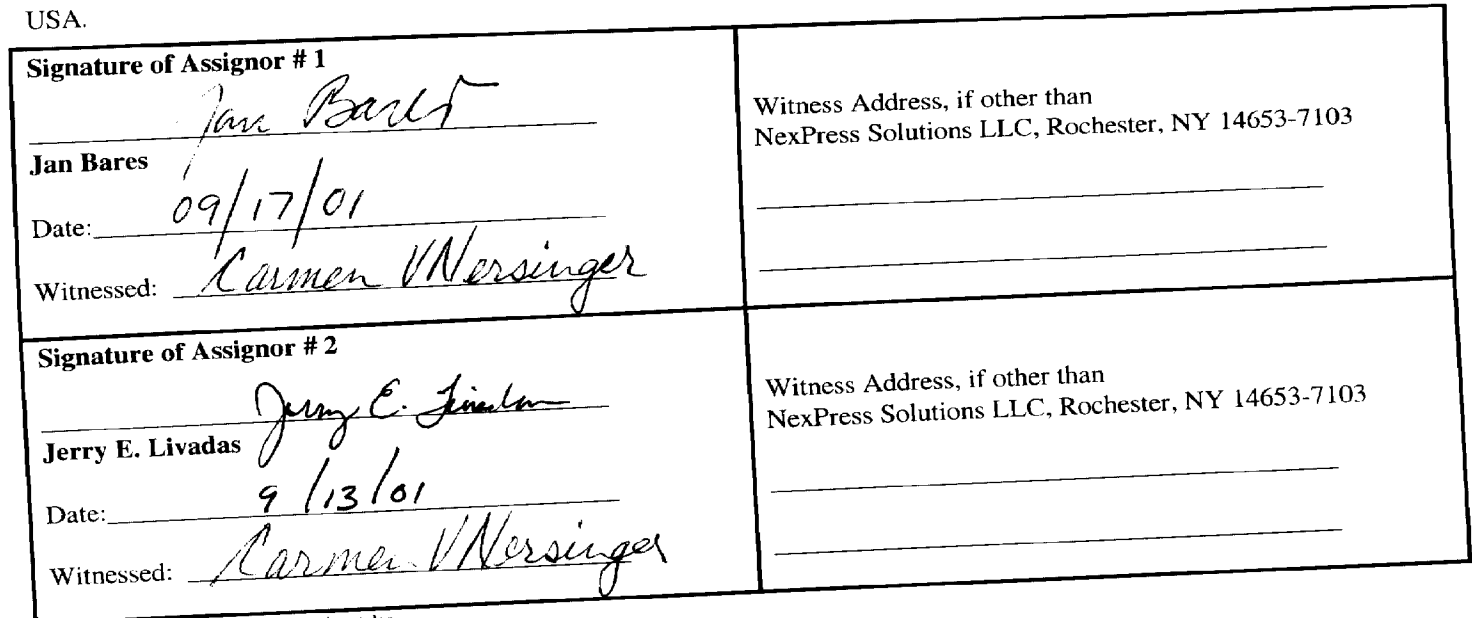 USA.
Signature of Assignor # 1
Jan Bares
Jan Bares
Date: 09/17/01
Witnessed: Carmen V Nersinger
Witness Address, if other than
NexPress Solutions LLC, Rochester, NY 14653-7103
Signature of Assignor # 2
Jerry E. Livadas
Jerry E. Livadas
Date: 9/13/01
Witnessed: Carmen V Nersinger
Witness Address, if other than
NexPress Solutions LLC, Rochester, NY 14653-7103